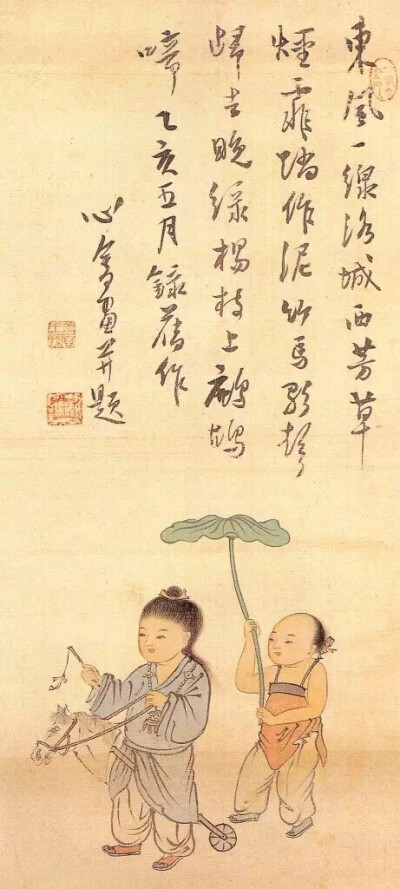 東風一線洛城西芳草
煙霏踏作泥竹馬
歸去晚綠楊枝上鷓鴣
啼 乙亥五月錄舊作
心畬畫并題